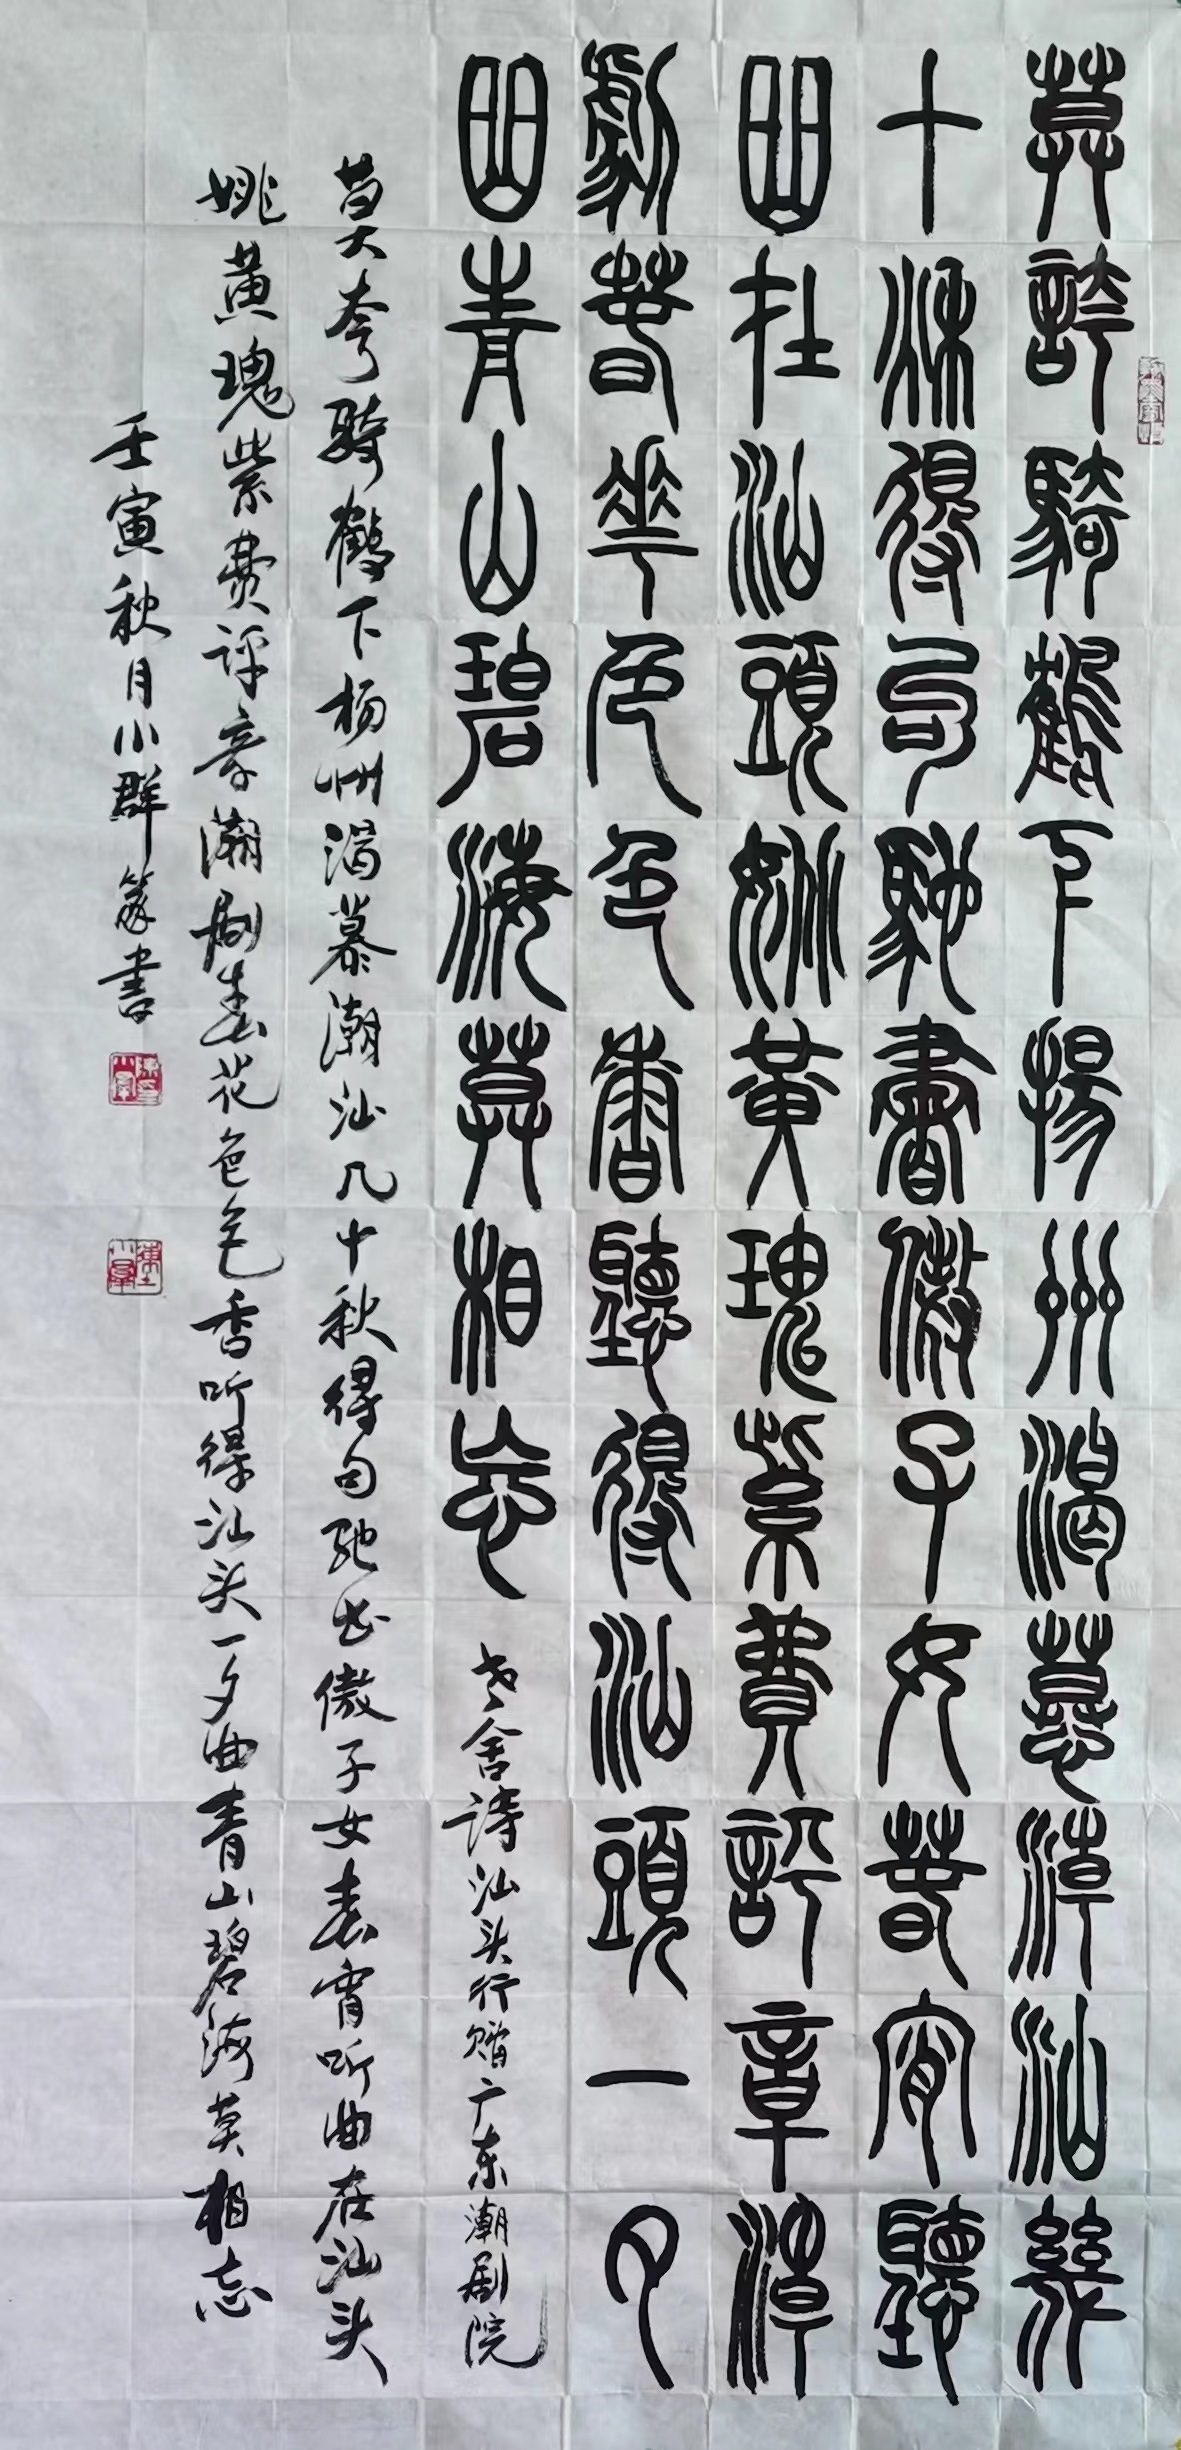 莫誇騎鶴下揚州渴慕潮汕幾
十秋得句馳書傲子女春宵聽
曲在汕頭姚黃瑰紫費評章潮
劇春花色色香聽得汕頭一夕
曲青山碧海莫相忘
老舍诗汕头行赠广东潮剧院
莫夸骑鹤下杨州渴慕潮汕几十秋得句驰书傲子女春宵听曲在汕头
姚黄瑰紫费评章潮剧春花色色香听得汕头一夕曲青山碧海莫相忘
壬寅秋月小群篆书